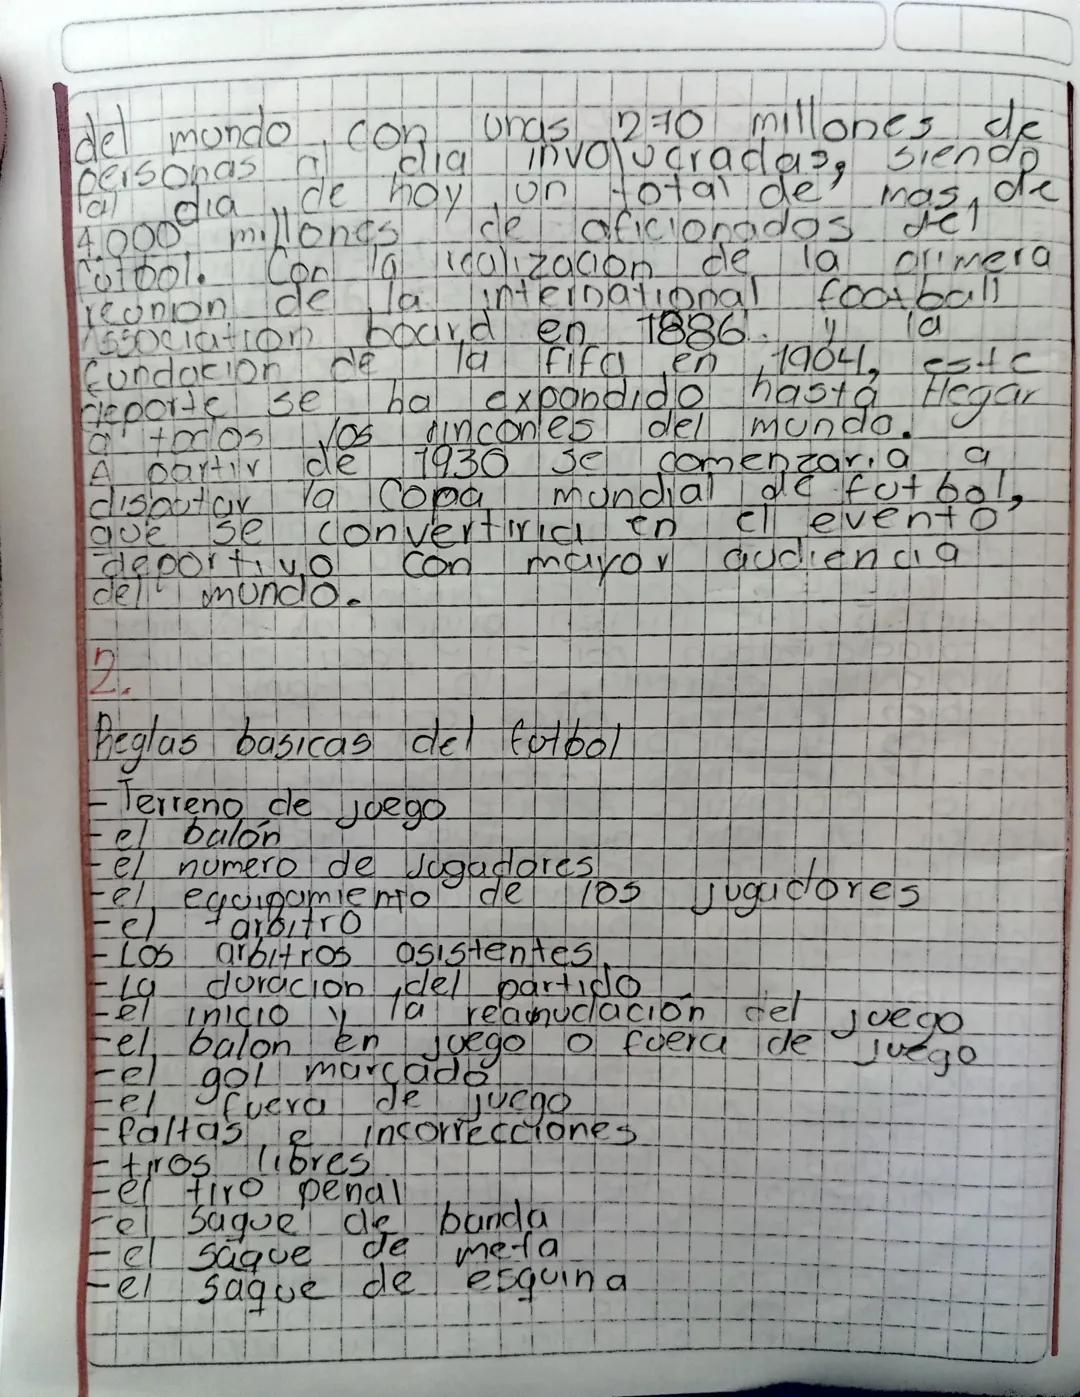 del mundo, con unas 270 millones de
personas al dia involucradas, siendo
al dia de hoy un total de mas de
4.000 millones de aficionados del
futbol. Con la realizacion de la primera
reunion de la international football
Association board en 1886. y la
fundacion de la fifa en 1904, este
deporte se ha expandido hasta llegar
a todos los rincones del mundo.
A partir de 1930 se comenzaria a
disputar la Copa mundial de futbol,
que se convertiria en el evento
deportivo con mayor audiencia
del mundo.
2.
Reglas basicas del futbol
- Terreno de juego
- el balón
- el numero de jugadores
- el equipamiento de los jugadores
- el arbitro
- Los arbitros asistentes
- La duracion del partido
- el inicio y la reanudacion del juego
- el balon en juego o fuera de juego
- el gol marcado
- el fuera de juego
- faltas e incorrecciones
- tiros libres
- el tiro penal
- el saque de banda
- el saque de meta
- el saque de esquina